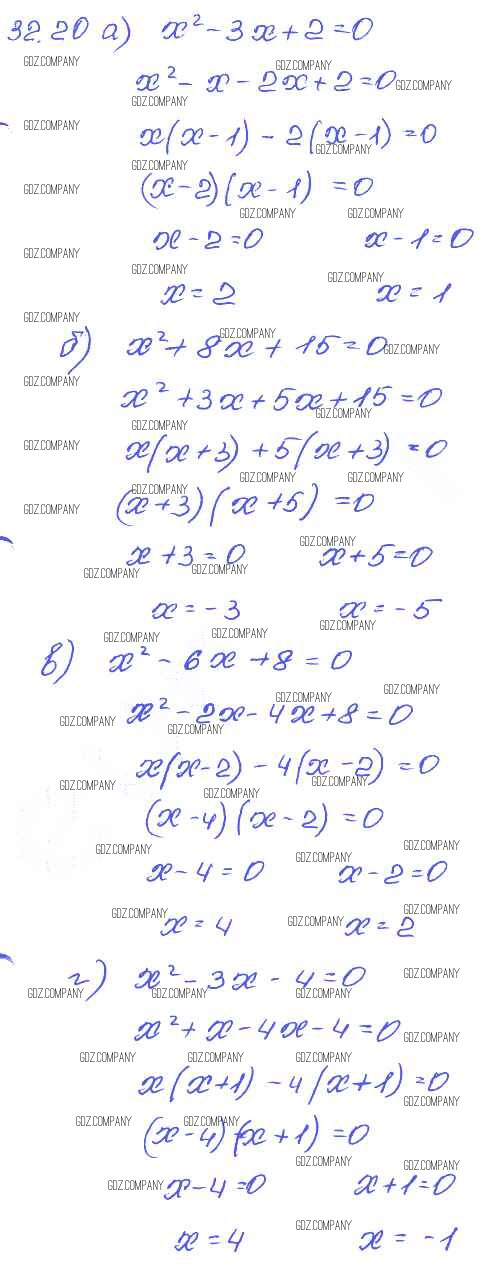 32.20 а) x² - 3x + 2 = 0
x² - x - 2x + 2 = 0
x(x - 1) - 2(x - 1) = 0
(x - 2)(x - 1) = 0
x - 2 = 0 x - 1 = 0
x = 2 x = 1
б) x² + 8x + 15 = 0
x² + 3x + 5x + 15 = 0
x(x + 3) + 5(x + 3) = 0
(x + 3)(x + 5) = 0
x + 3 = 0 x + 5 = 0
x = -3 x = -5
в) x² - 6x + 8 = 0
x² - 2x - 4x + 8 = 0
x(x - 2) - 4(x - 2) = 0
(x - 4)(x - 2) = 0
x - 4 = 0 x - 2 = 0
x = 4 x = 2
г) x² - 3x - 4 = 0
x² + x - 4x - 4 = 0
x(x + 1) - 4(x + 1) = 0
(x - 4)(x + 1) = 0
x - 4 = 0 x + 1 = 0
x = 4 x = -1
GDZ.COMPANY